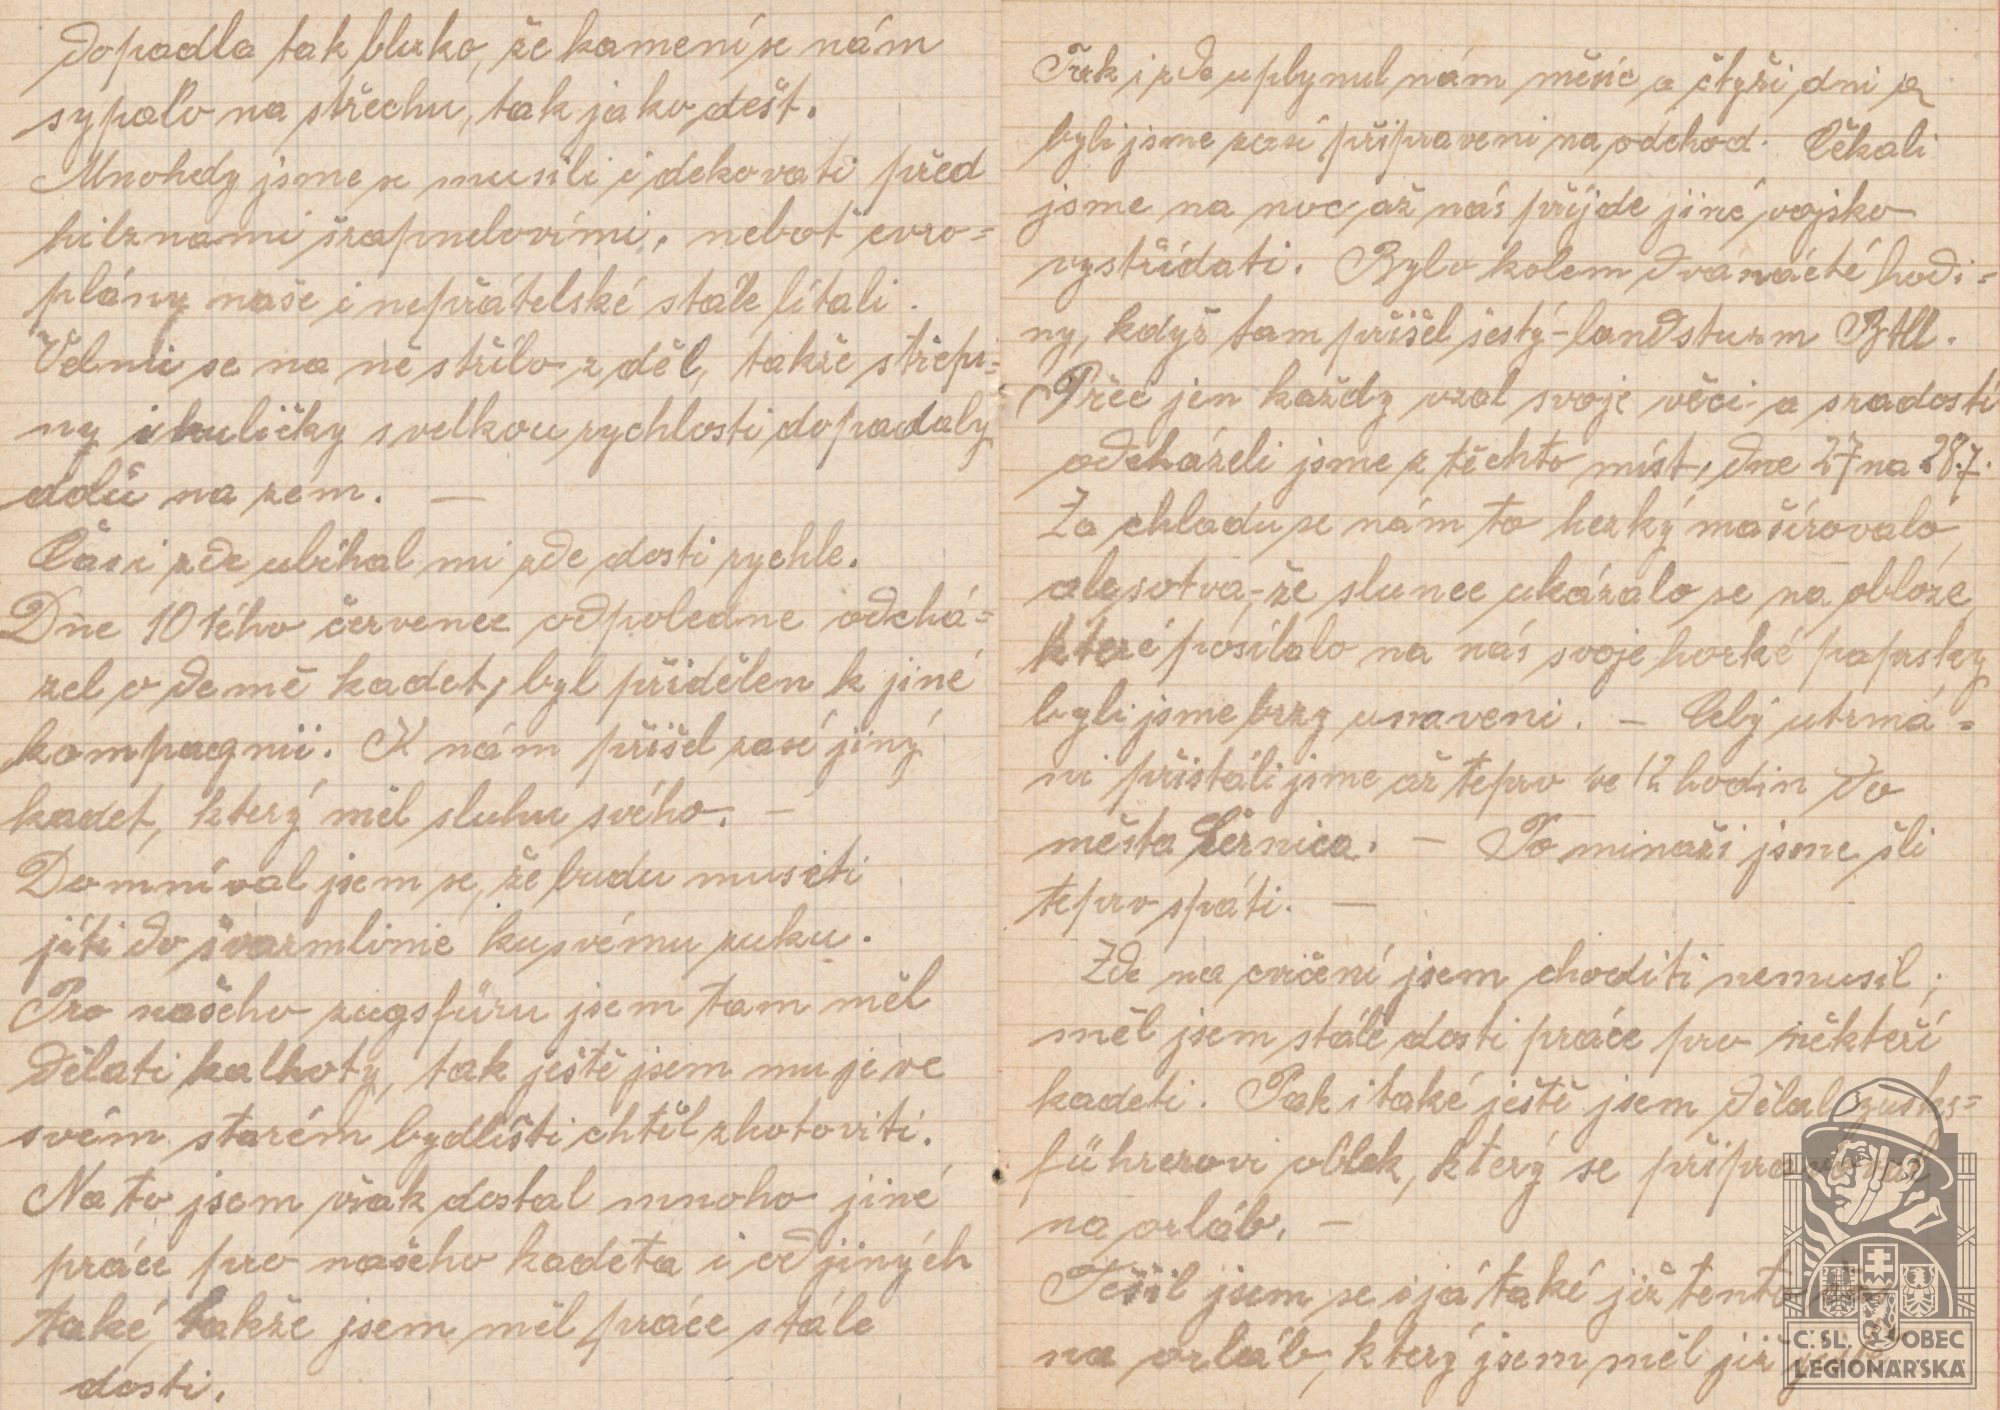 dopadla tak blizko, že kamení se nám
sypalo na střechu, tak jako dešť.
Mnohdy jsme se musili i dekovati před
hilznami šrapnelovími, neboť evro=
plány naše i nepřátelské stále lítali.
Velmi se na ně střílo z děl, takže střepi=
ny i kuličky s velkou rychlosti dopadaly
dolů na zem. —
Čas i zde ubíhal mi zde dosti rychle.
Dne 10tého července odpoledne odchá=
zel odemě kadet, byl přidělen k jiné
kompagnii. K nám přišel zasé jiný
kadet, který měl sluhu svého. —
Domníval jsem se, že budu museti
jíti do švarmlinie ku svému zuku.
Pro našeho zugsfüru jsem tam měl
dělati kalhoty, tak ještě jsem mu je ve
svém starém bydlišti chtěl zhotoviti.
Na to jsem však dostal mnoho jiné
práce pro našeho kadeta i od jiných
také, takže jsem měl práce stále
dosti.
Tak i zde uplynul nám měsíc a čtyři dni a
byli jsme zasé připraveni na odchod. Čekali
jsme na noc až nás příjde jiné vojsko
vystřídati. Bylo kolem dvanácté hodi=
ny, když tam přišel šestý-landsturm Btll.
Přec jen každy vzal svoje věci a s radostí
odcházeli jsme z těchto míst, dne 27 na 28.7.
Za chladu se nám to hezký mašírovalo,
ale sotva-že slunce ukázalo se na obloze,
které posílalo na nás svoje horké paprsky
byli jsme brzy unaveni. — Celý utrmá=
ni přistáli jsme až teprv ve 12 hodin do
města . — Po minaži jsme šli
teprv spáti. —
Zde na cvičení jsem choditi nemusil,
měl jsem stále dosti práce pro někteří
kadeti. Pak i také ještě jsem dělal zuks=
führerovi oblek, který se připravoval
na orláb. —
Těšil jsem se i já také již tento
na orláb, který jsem měl již
Č. SL. OBEC
LEGIONÁŘSKÁ